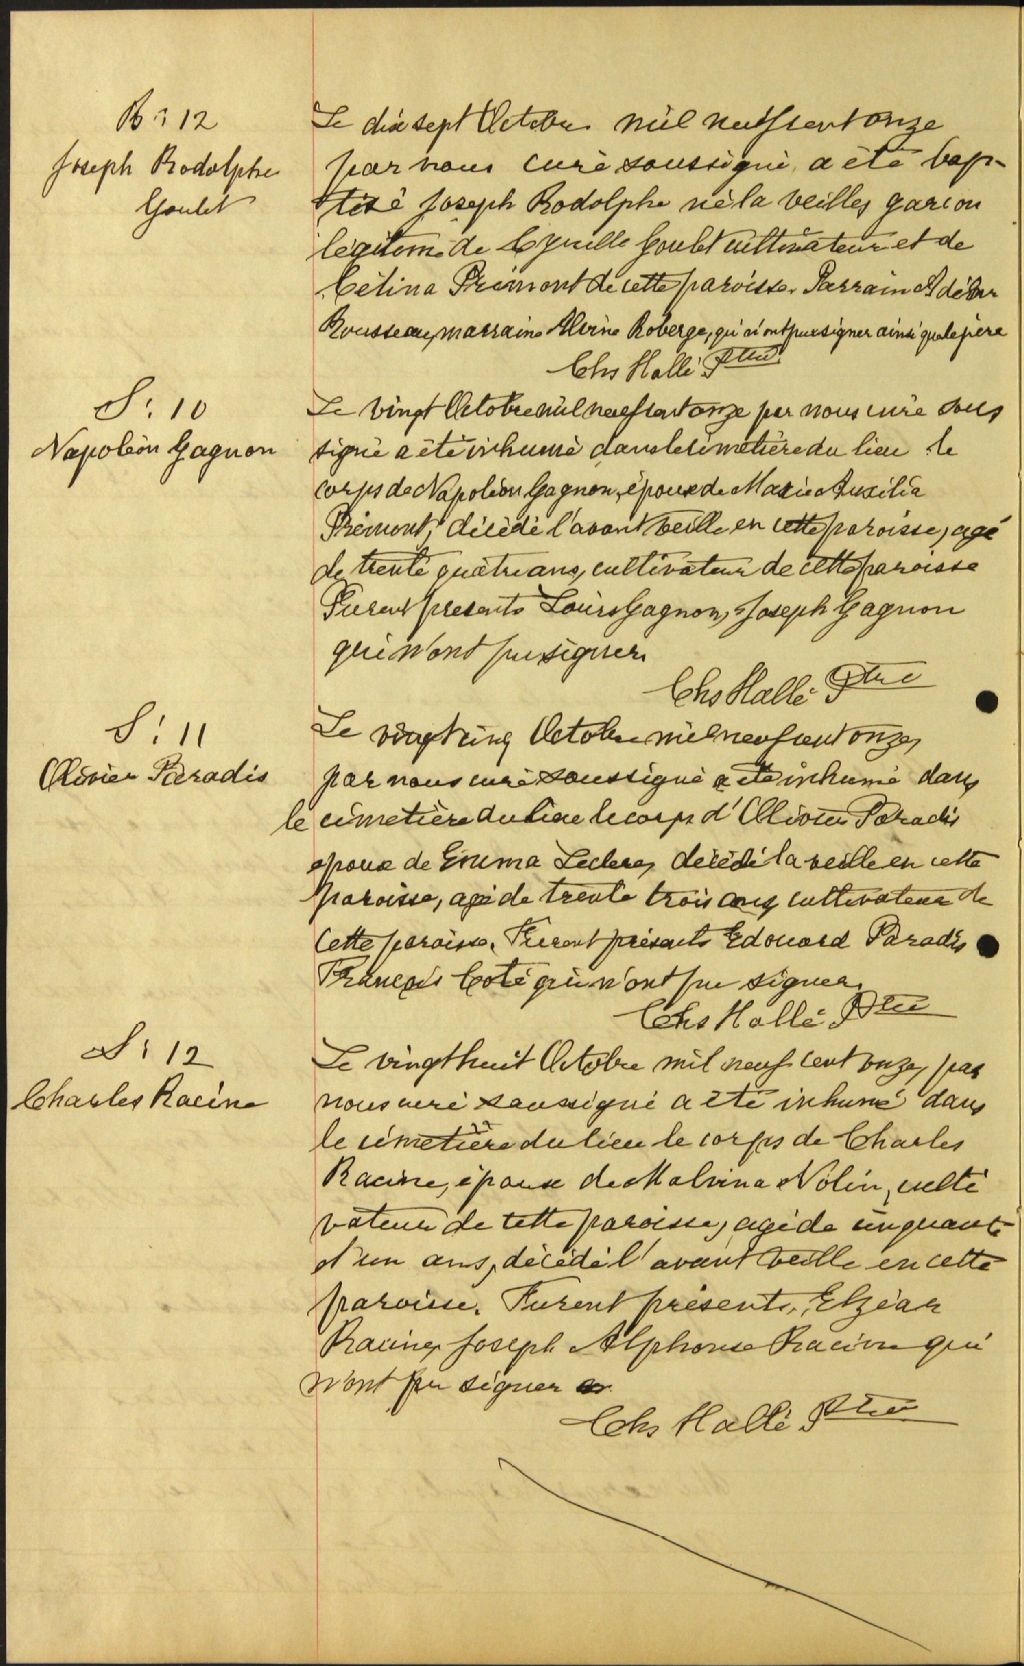 B: 12
Joseph Rodolphe
Goulet
Le dix sept Octobre mil neuf cent onze
par nous curé soussigné a été bap-
tisé Joseph Rodolphe né la veille, garçon
légitime de Cyrille Goulet cultivateur et de
Célina Prémont de cette paroisse. Parrain Adélar
Rousseau, marraine Alvina Roberge, qui n'ont pu signer ainsi que le père
Chs Hallé Ptre
S: 10
Napoléon Gagnon
Le vingt Octobre mil neuf cent onze par nous curé sous
signé a été inhumé dans le cimetière du lieu le
corps de Napoléon Gagnon, époux de Marie Auxilia
Prémont, décédé l'avant veille en cette paroisse, agé
de trente quatre ans, cultivateur de cette paroisse
Furent presents Louis Gagnon, Joseph Gagnon
qui n'ont pu signer.
Chs Hallé Ptre
S: 11
Olivier Paradis
Le vingt cinq Octobre mil neuf cent onze,
par nous curé soussigné a été inhumé dans
le cimetière du lieu le corps d'Olivier Paradis
époux de Emma Leclerc, décédé la veille en cette
paroisse, agé de trente trois ans, cultivateur de
cette paroisse. Furent présents Edouard Paradis
François Coté qui n'ont pu signer.
Chs Hallé Ptre
S: 12
Charles Racine
Le vingt huit Octobre mil neuf cent onze, par
nous curé soussigné a été inhumé dans
le cimetière du lieu le corps de Charles
Racine, époux de Malvina Nolin, culti
vateur de cette paroisse, agé de cinquante
et un ans, décédé l'avant veille en cette
paroisse. Furent présents, Elzéar
Racine, Joseph Alphonse Racine qui
n'ont pu signer
Chs Hallé Ptre